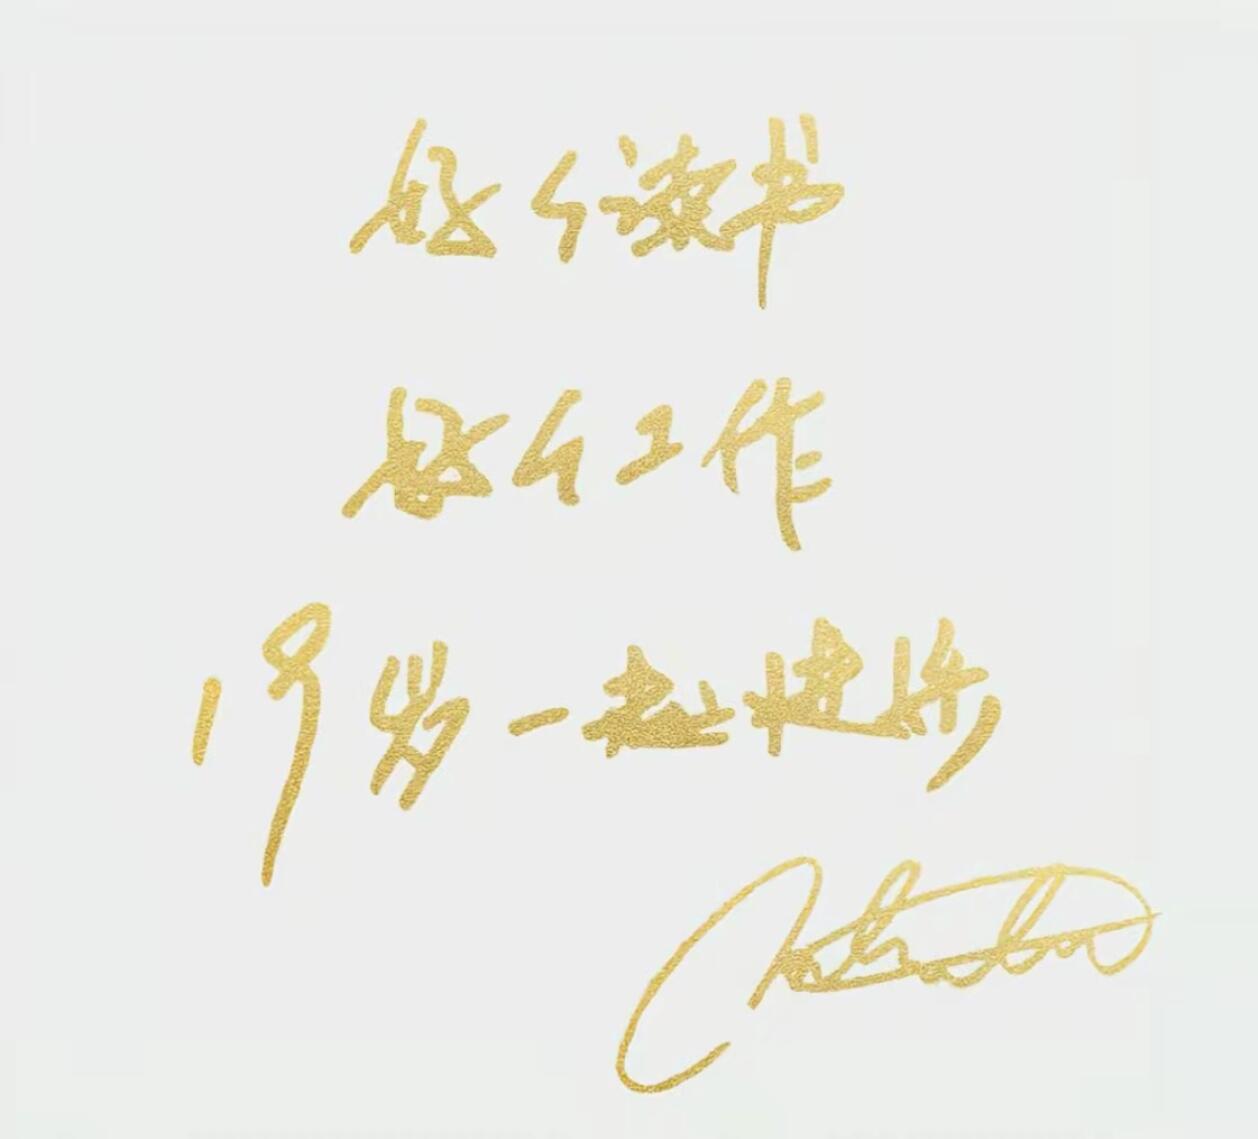 好好读书
好好工作
19岁一起进步